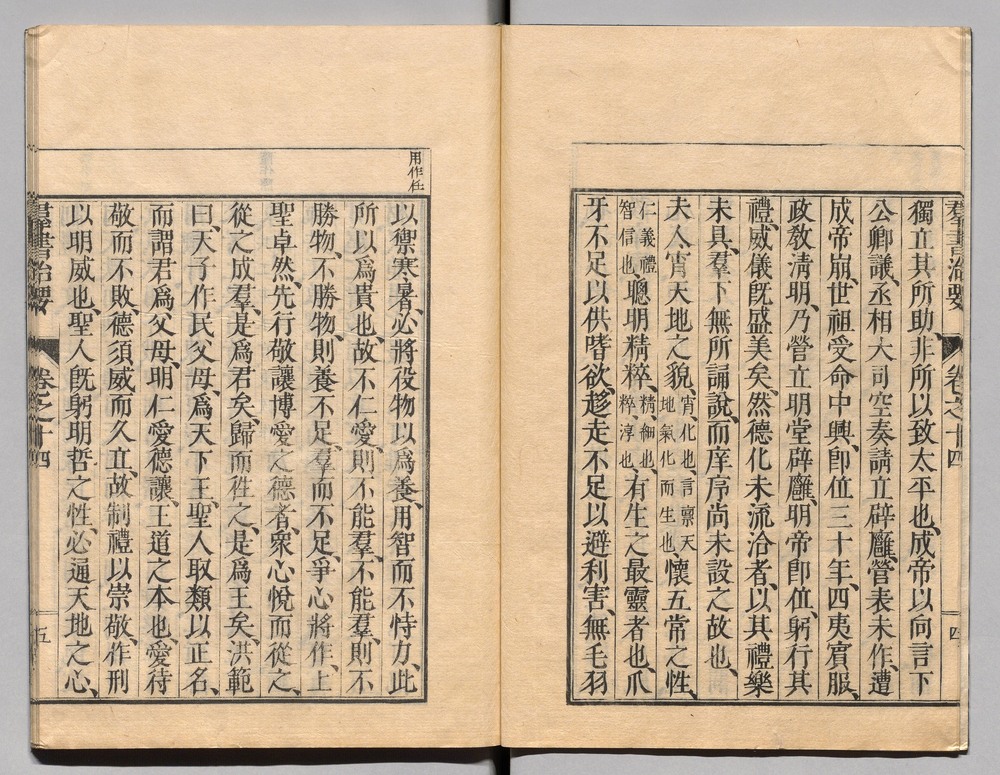 羣書治要　卷之十四　四
獨立其所助、非所以致太平也、成帝以向言下
公卿議、丞相大司空奏請立辟廱、營表未作、遭
成帝崩、世祖受命中興、卽位三十年、四夷賓服、
政敎淸明、乃營立明堂辟廱、明帝卽位、躬行其
禮、威儀旣盛美矣、然德化未流洽者、以其禮樂
未具、羣下無所誦說、而庠序尚未設之故也、
夫人宵天地之貌、宵、化也、言禀天地氣化而生也、懷五常之性、
仁義禮智信也、聰明精粹、精、細也、粹、淳也、有生之最靈者也、爪
牙不足以供嗜欲、趍走不足以避利害、無毛羽
用作任
以禦寒暑、必將役物以爲養、用智而不恃力、此
所以爲貴也、故不仁愛、則不能羣、不能羣、則不
勝物、不勝物、則養不足、羣而不足、爭心將作、上
聖卓然、先行敬讓博愛之德者、衆心悅而從之、
從之成羣、是爲君矣、歸而往之、是爲王矣、洪範
曰、天子作民父母、爲天下王、聖人取類以正名、
而謂君爲父母、明仁愛德讓、王道之本也、愛待
敬而不敗、德須威而久立、故制禮以崇敬、作刑
以明威也、聖人旣躬明哲之性、必通天地之心、
羣書治要　卷之十四　五